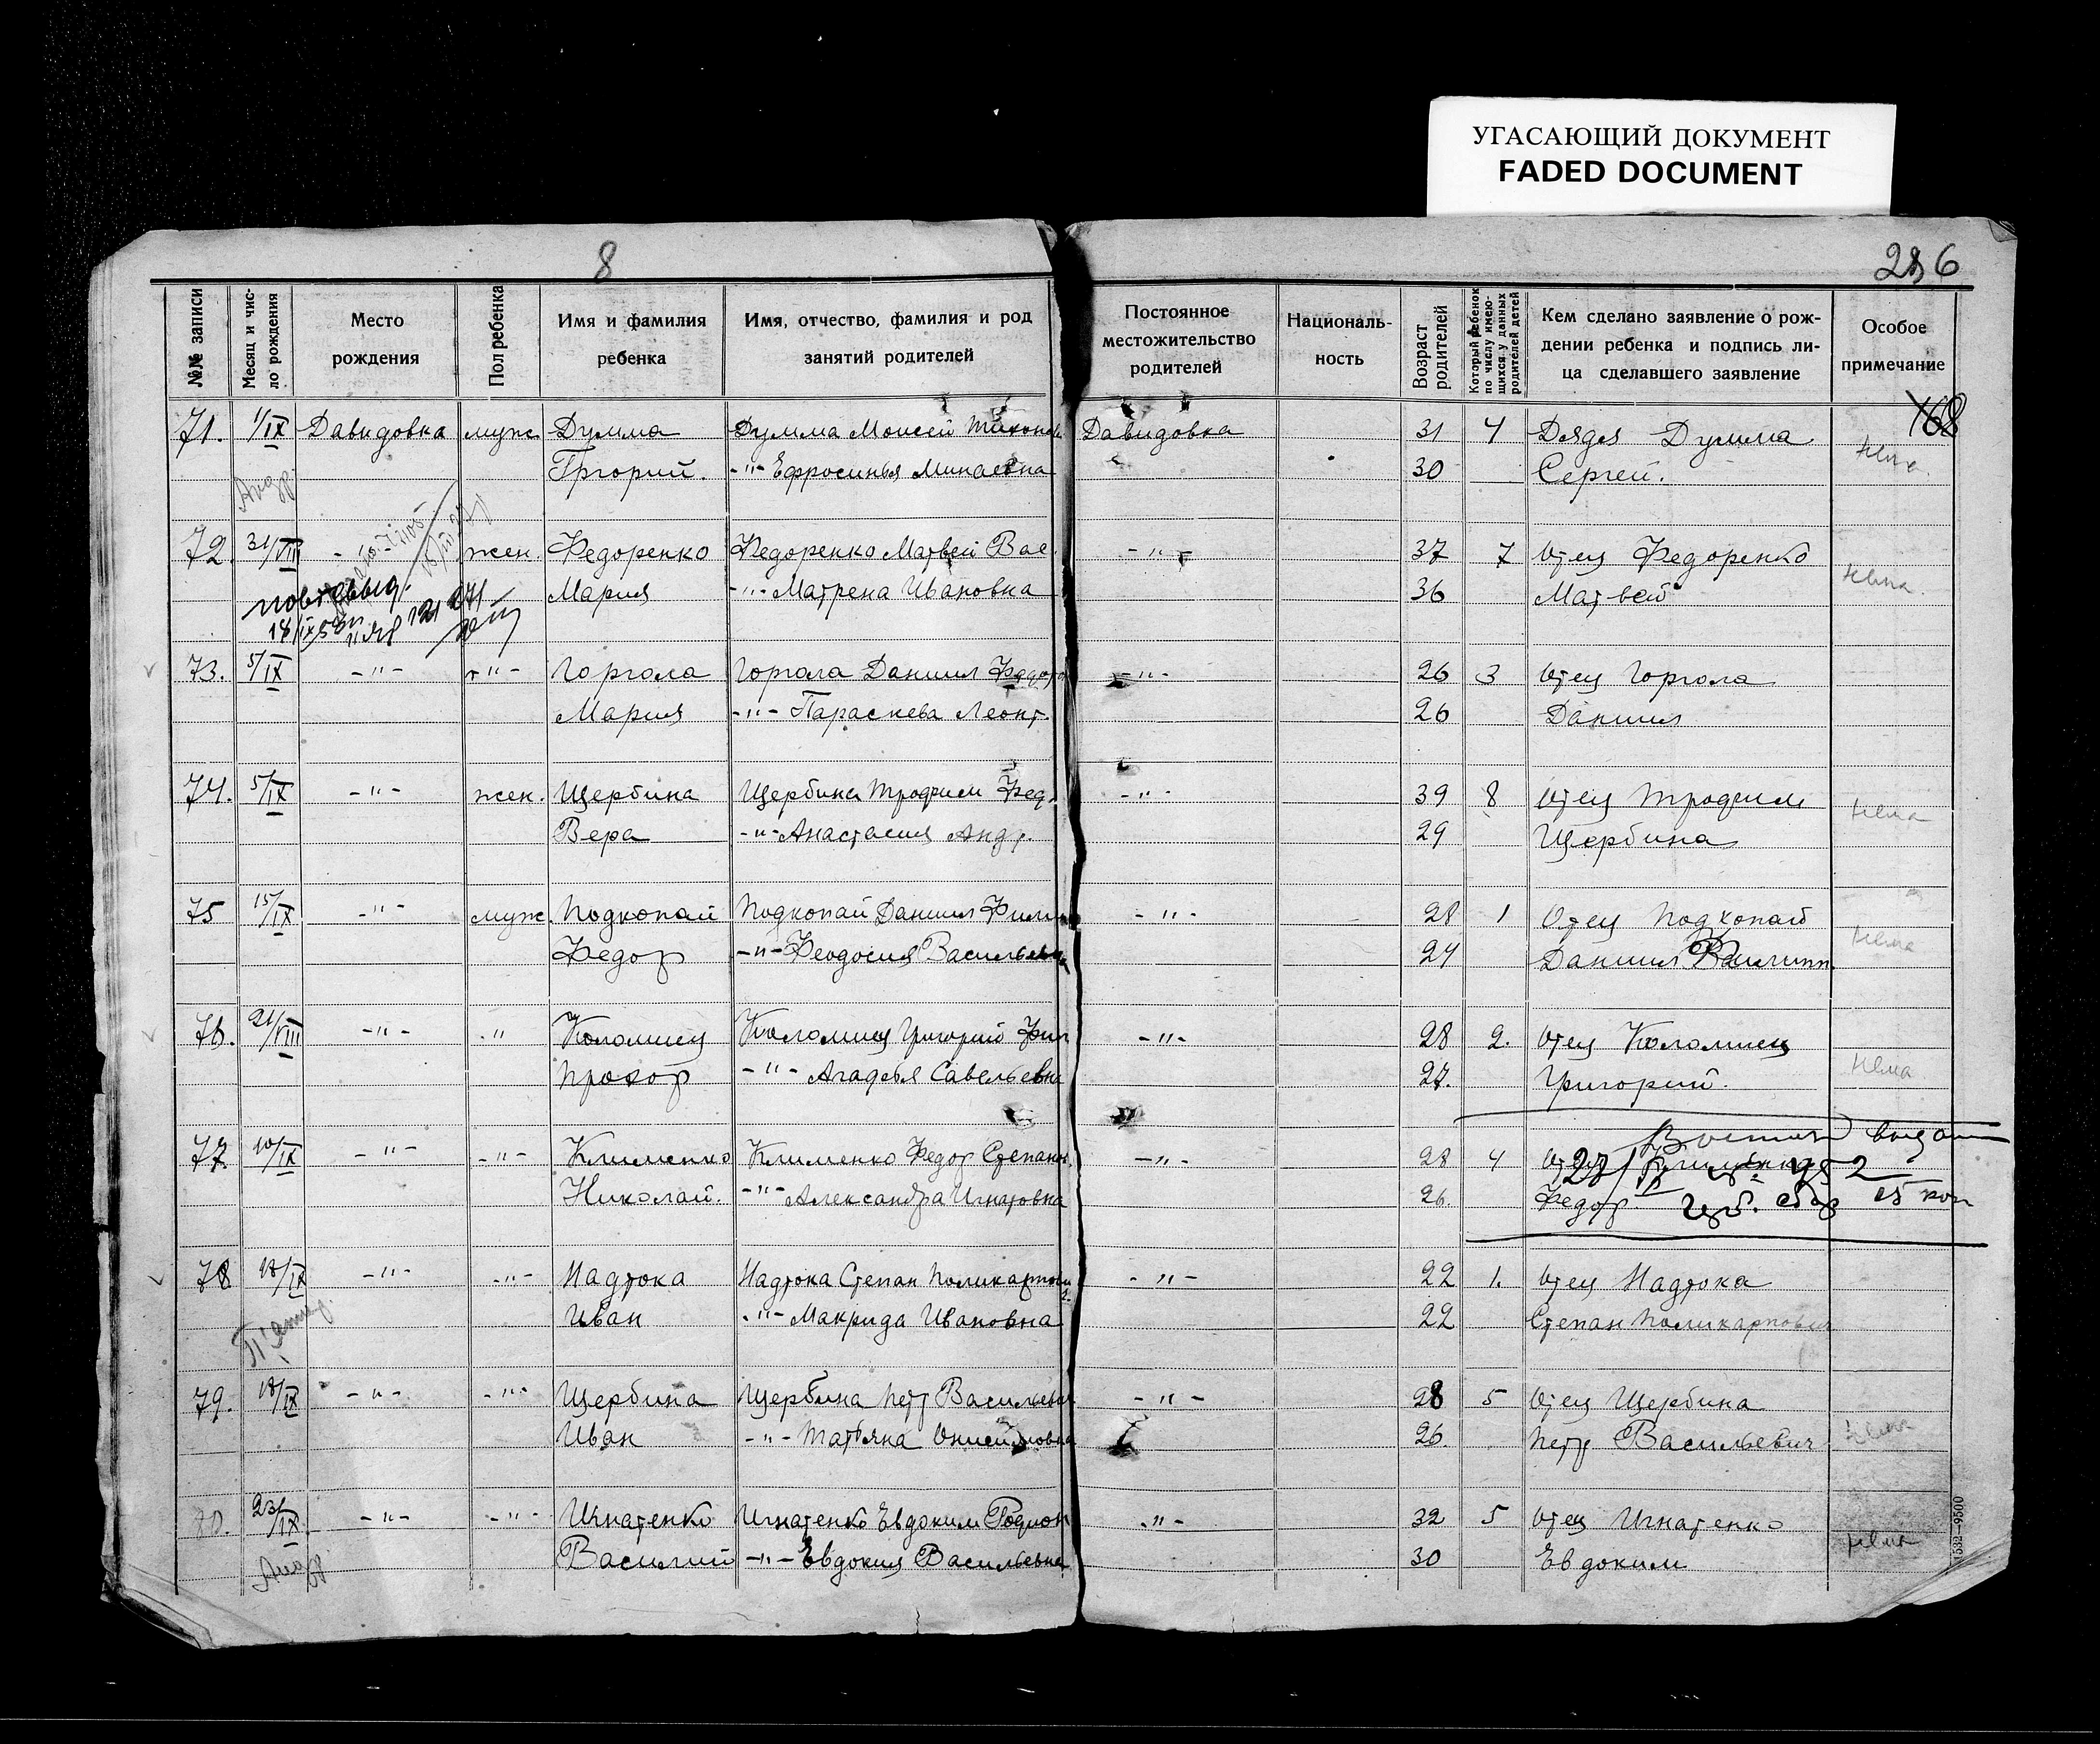 УГАСАЮЩИЙ ДОКУМЕНТ
FADED DOCUMENT
8
286
№№ записи
Месяц и чис-
ло рождения
Место
рождения
Пол ребенка
Имя и фамилия
ребенка
Имя, отчество, фамилия и род
занятий родителей
Постоянное
местожительство
родителей
Националь-
ность
Возраст
родителей
Который ребенок
по числу имею-
щихся у данных
родителей детей
Кем сделано заявление о рож-
дении ребенка и подпись ли-
ца сделавшего заявление
Особое
примечание
168
71. 1/IX Давидовка муж. Думма Думма Моисей Тихонов Давидовка 31 4 Дядя Думма
Григорий. -"- Ефросинья Минаевна 30 Сергей.
нема
Андр.
72. 31/VIII -"- жен. Федоренко Федоренко Матвей Вас. -"- 37 7 Отец Федоренко
Мария -"- Матрена Ивановна 36 Матвей
нема
повт. выд.
18/IX 5
73. 5/IX -"- -"- Горгола Горгола Даниил Федор -"- 26 3 Отец Горгола
Мария -"- Параскева Леонт. 26 Даниил
74. 5/IX -"- жен. Щербина Щербина Трофим Фед. -"- 39 8 Отец Трофим
Вера -"- Анастасия Андр. 29 Щербина
нема
75 15/IX -"- муж. Подкопай Подкопай Даниил Фили -"- 28 1 Отец Подкопай
Федор -"- Феодосия Васильевна 24 Даниил Филипп.
нема
76. 21/VIII -"- " Коломиец Коломиец Григорий Фил -"- 28 2. Отец Коломиец
Прохор -"- Агафья Савельевна 27. Григорий.
нема
77. 10/IX -"- -"- Клименко Клименко Федор Степанов. -"- 28 4 Отец Клименко
Николай. -"- Александра Игнатовна 26. Федор
выдан
сбор 15 коп
78 18/IX -"- -"- Надтока Надтока Степан Поликарпови -"- 22 1. Отец Надтока
ч.
Иван -"- Макрида Ивановна 22 Степан Поликарпович
79. 18/IX -"- -"- Щербина Щербина Петр Васильевич -"- 28 5 Отец Щербина
Иван -"- Татьяна Онисимовна 26. Петр Васильевич
нема
80. 23/IX -"- -"- Игнатенко Игнатенко Евдоким Родион -"- 32 5 Отец Игнатенко
Василий -"- Евдокия Васильевна 30 Евдоким
нема
Андр